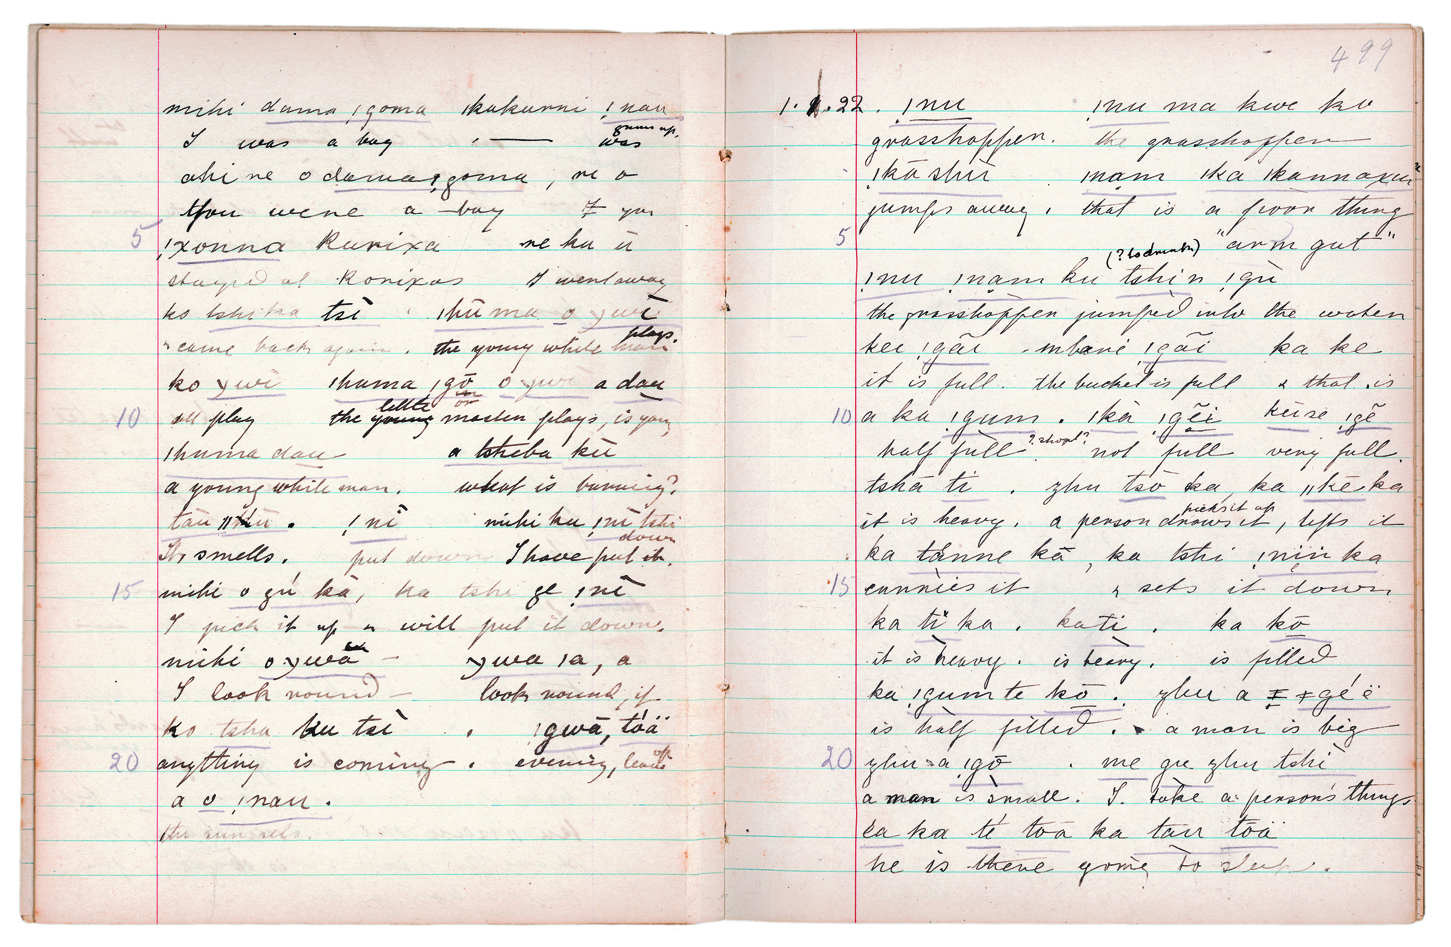 mihi dama !goma !kakurni !nau
I was a boy ! — was grown up.
ahi ne o dama !goma, ne o
You were a boy If you
5 !xonna Kurixa ne ku ū
stayed at Konixas I went away
ko tshi ka tsī . !hū ma o ywī
& came back again. the young white man plays.
ko ywī !huma !gō o ywī a dau
10 all play the young little master plays, is young
!huma dau a tsheba kū
a young white man. what is burning?
tau ǁkū . !nī mihi ku !nī tshi
It smells. put down I have put it down.
15 mihi o gú kā, ka tshi ge !nī
I pick it up & will put it down.
mihi o ywā — ywa !a, a
I look round — look round, if
ko tsha ku tsī . !gwā, tóä
20 anything is coming. evening, leave off
a o !nau .
the sun sets.
499
1.1.22. !nu !nu ma kwe ko
grasshopper. the grasshopper
!kāshū !nam !ka !kannaxu
jumps away, that is a poor thing
5 "arm gut"
(? to drink)
!nu !nam ku tshin !gù
the grasshopper jumped into the water
kei !gāi mbane !gāi ka ke
it is full. the bucket is full & that is
10 a ka !gum . !kā !gēi keise !gē
half full ? short? not full very full.
tshā ti . zhu tsō ka ka ǁkē ka
it is heavy. a person draws it, picks it up lifts it
ka tánne kā, ka tshi !nin ka
15 carries it & sets it down
ka ti ka . ka ti . ka kō
it is heavy. is heavy. is filled
ka !gum te kō . zhu a ǂ ǂgéë
is half filled. a man is big
20 zhu a !gō . me gu zhu tshi
a man is small. I take a person's things
éa ka té toa ka tau tóä
he is there going to sleep.